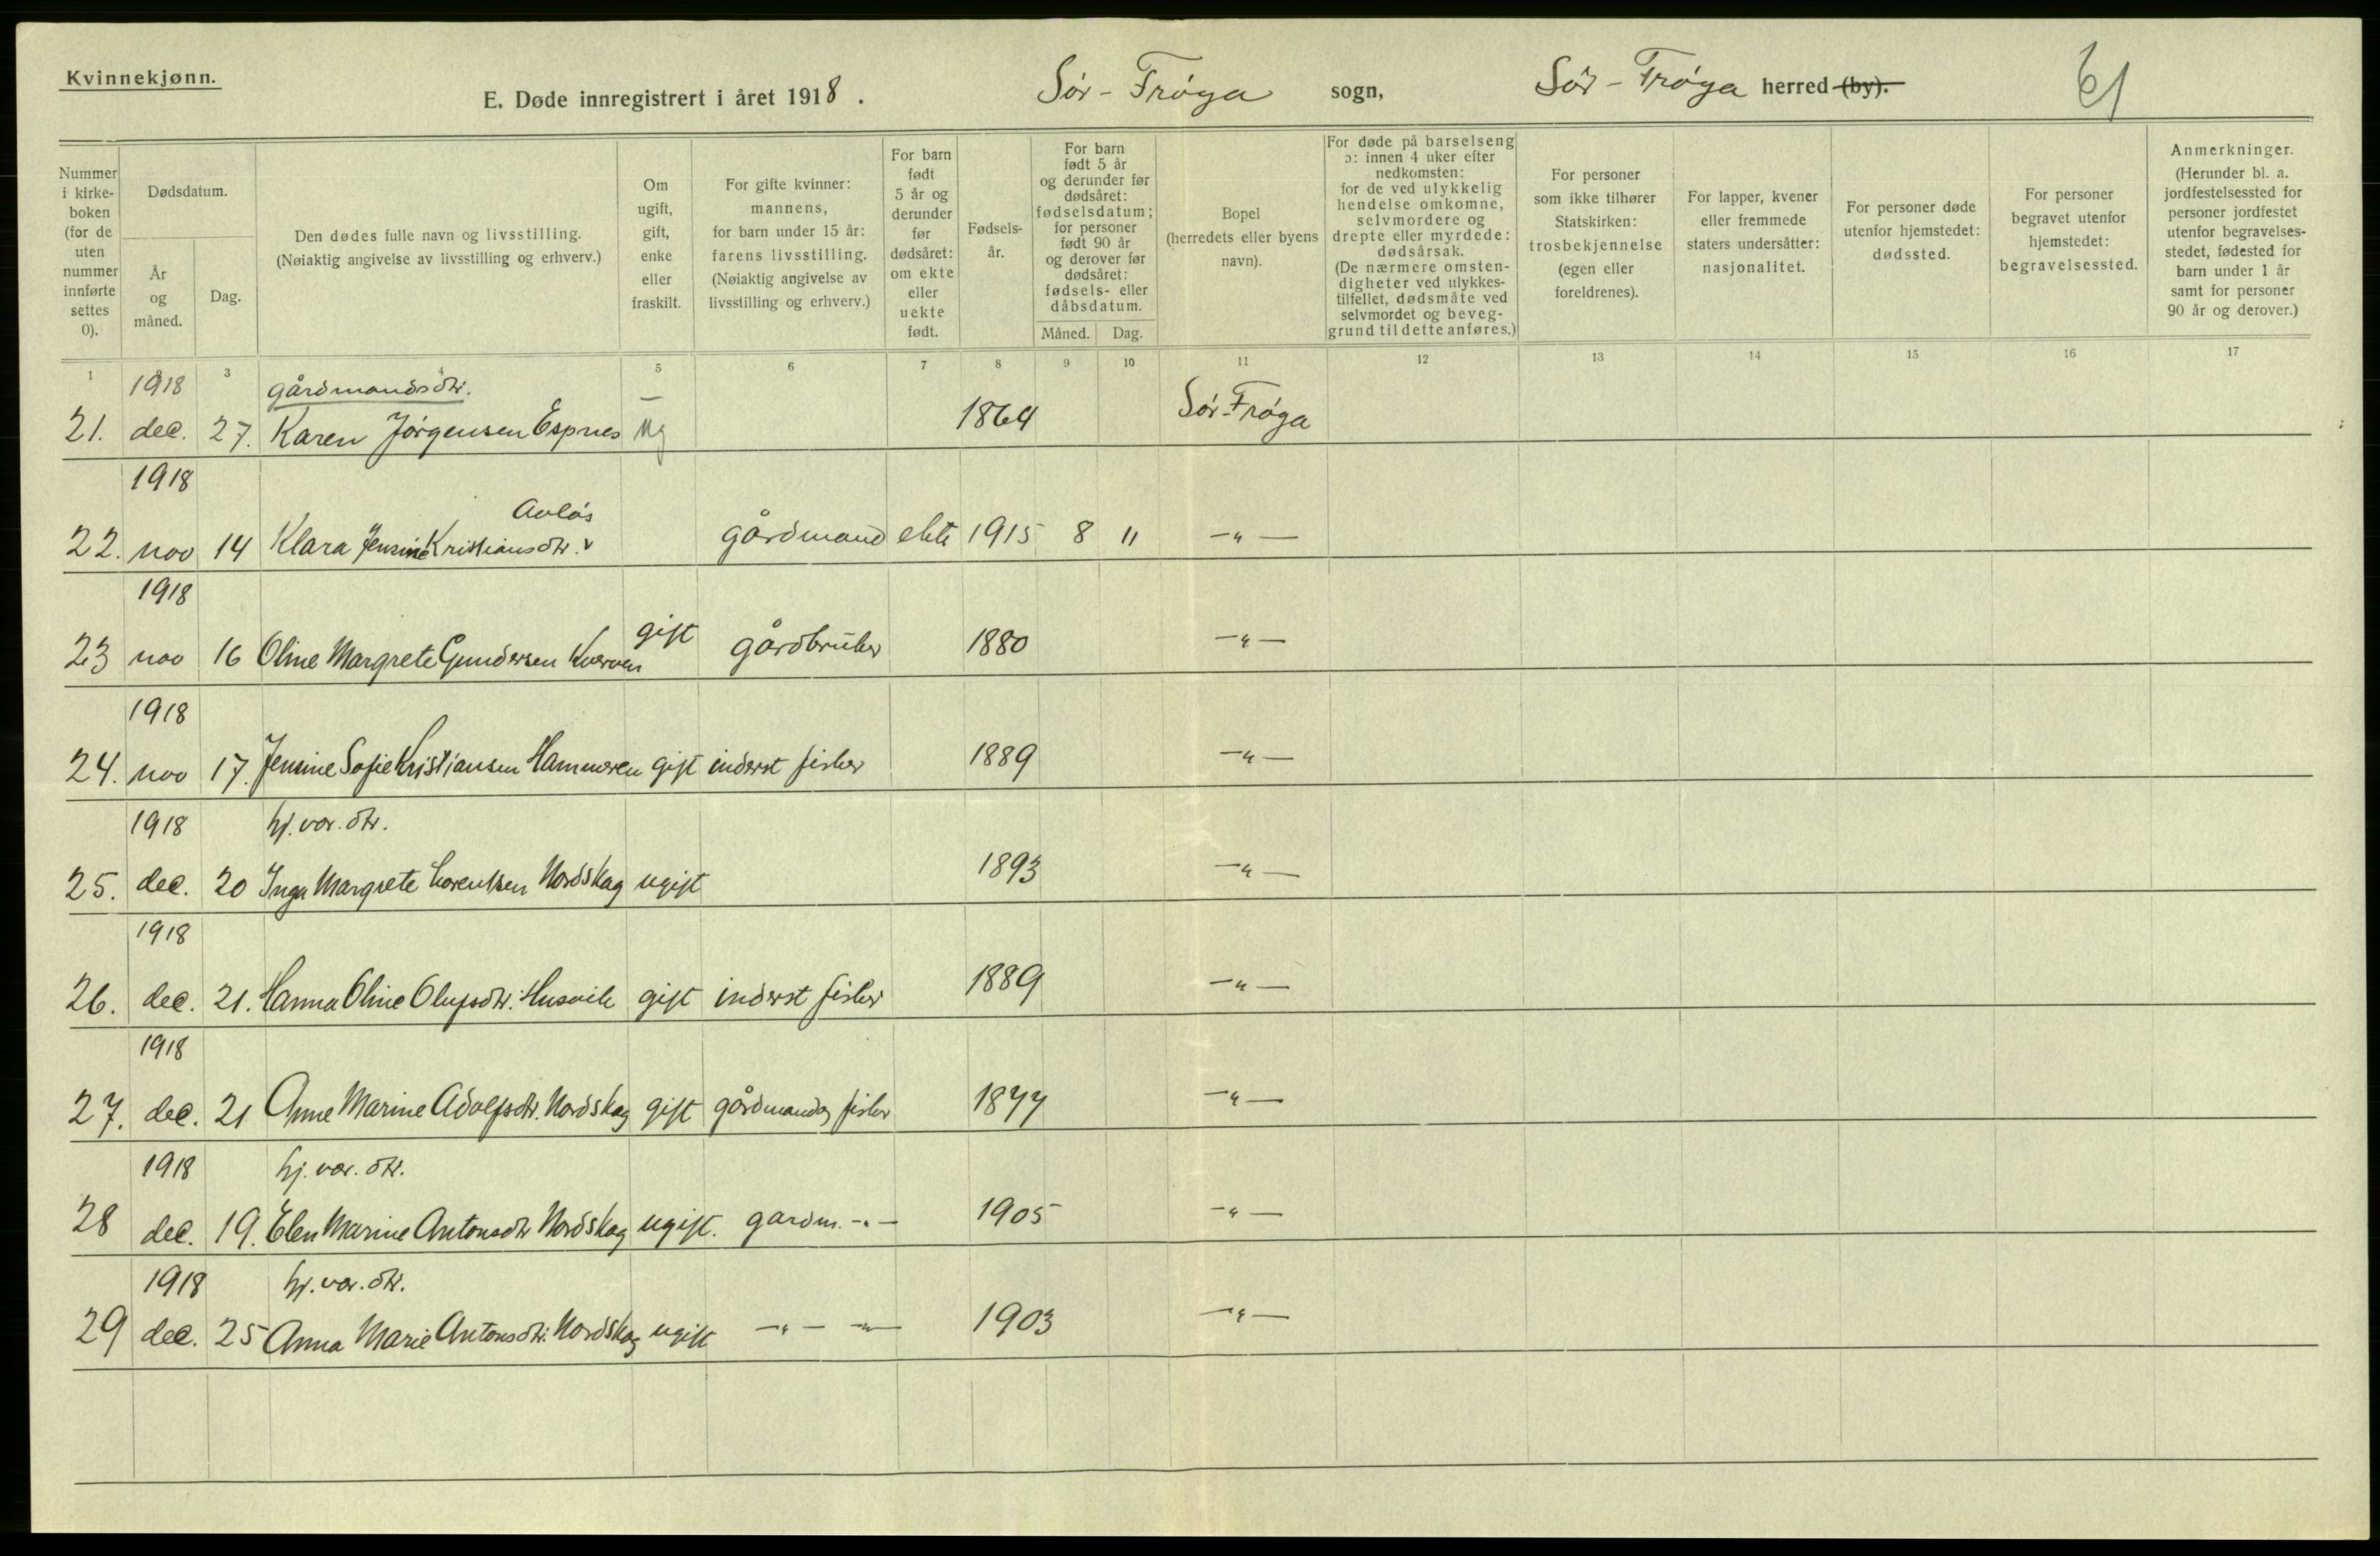 Kvinnekjønn.
E. Døde innregistrert i året 1918. Sør-Frøya sogn, Sør-Frøya herred (by). 61
Nummer i kirke-boken (for de uten nummer innførte settes 0).
Dødsdatum.
År og måned.
Dag.
Den dødes fulle navn og livsstilling.
(Nøiaktig angivelse av livsstilling og erhverv.)
Om ugift, gift, enke eller fraskilt.
For gifte kvinner: mannens, for barn under 15 år: farens livsstilling. (Nøiaktig angivelse av livsstilling og erhverv.)
For barn født 5 år og derunder før dødsåret: om ekte eller uekte født.
Fødsels-år.
For barn født 5 år og derunder før dødsåret: fødselsdatum; for personer født 90 år og derover før dødsåret: fødsels- eller dåbsdatum.
Måned. Dag.
Bopel (herredets eller byens navn).
For døde på barselseng ɔ: innen 4 uker efter nedkomsten: for de ved ulykkelig hendelse omkomne, selvmordere og drepte eller myrdede: dødsårsak. (De nærmere omsten-digheter ved ulykkes-tilfellet, dødsmåte ved selvmordet og beveg-grund til dette anføres.)
For personer som ikke tilhører Statskirken: trosbekjennelse (egen eller foreldrenes).
For lapper, kvener eller fremmede staters undersåtter: nasjonalitet.
For personer døde utenfor hjemstedet: dødssted.
For personer begravet utenfor hjemstedet: begravelsessted.
Anmerkninger. (Herunder bl. a. jordfestelsessted for personer jordfestet utenfor begravelses-stedet, fødested for barn under 1 år samt for personer 90 år og derover.)
1 2 3 4 5 6 7 8 9 10 11 12 13 14 15 16 17
1918 gårdmandsdtr. —
21. dec. 27. Karen Jørgensen Espnes ug 1864 Sør-Frøya
1918
Avløs
22. nov 14 Klara Jensine Kristiansdtr. v gårdmand ekte 1915 8 11 —"—
1918
23 nov 16 Oline Margrete Gundersen Kverven gift gårdbruker 1880 —"—
1918
24. nov 17. Jensine Sofie Kristiansen Hammeren gift inderst fisker 1889 —"—
1918 hj.vær. dtr.
25. dec. 20 Inga Margrete Lorentsen Nordskag ugift 1893 —"—
1918
26. dec. 21. Hanna Oline Olufsdtr. Husvik gift inderst fisker 1889 —"—
1918
27. dec. 21 Anne Marine Adolfsdtr. Nordskag gift gårdmand og fisker 1877 —"—
1918 hj.vær. dtr.
28 dec. 19. Elen Marine Antonsdtr Nordskag ugift. gardm. —"— 1905 —"—
1918 hj.vær. dtr.
29 dec. 25 Anna Marie Antonsdtr. Nordskag ugift —"— —"— 1903 —"—